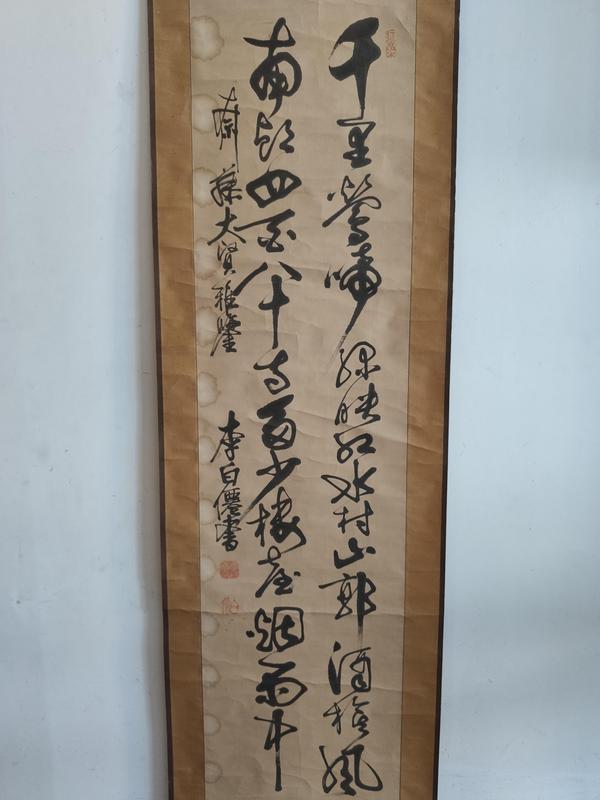 千里鶯啼綠映紅水村山郭酒旗風
南朝四百八十寺多少樓臺烟雨中
大賢雅鑒
李白僊書